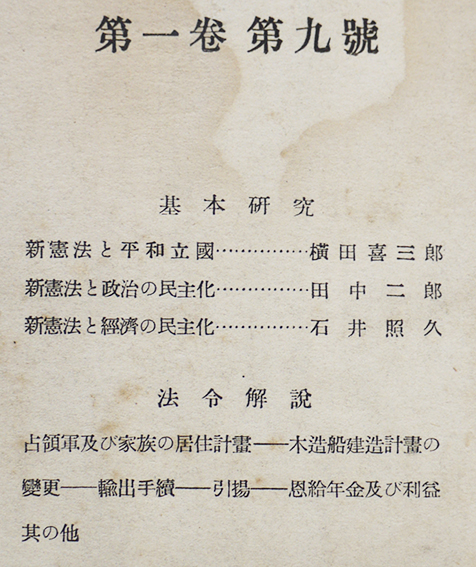 第一卷 第九號
基本研究
新憲法と平和立國……………橫田喜三郎
新憲法と政治の民主化……………田中二郎
新憲法と經濟の民主化……………石井照久
法令解說
占領軍及び家族の居住計畫――木造船建造計畫の
變更――輸出手續――引揚――恩給年金及び利益
其の他